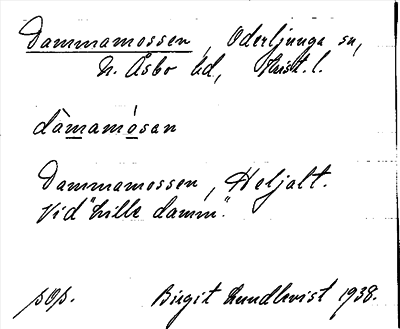 Dammamossen, Oderljunga sn,
N. Åsbo hd, Krist. l.
dàmamósan
Dammamossen, Heljalt.
Vid "lille damm".
pop. Birgit Lundkvist 1938.